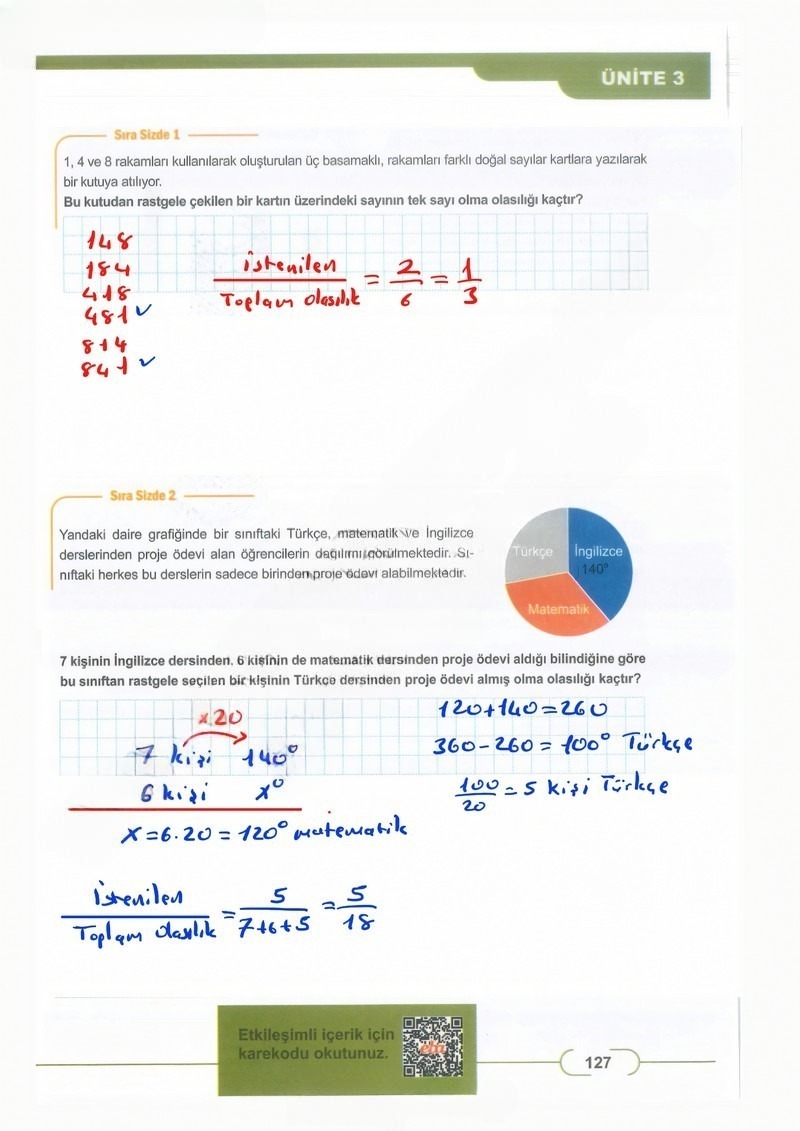 ÜNİTE 3
Sıra Sizde 1
1, 4 ve 8 rakamları kullanılarak oluşturulan üç basamaklı, rakamları farklı doğal sayılar kartlara yazılarak
bir kutuya atılıyor.
Bu kutudan rastgele çekilen bir kartın üzerindeki sayının tek sayı olma olasılığı kaçtır?
148
184
418
481 ✓
814
841 ✓
İstenilen / Toplam olasılık = 2/6 = 1/3
Sıra Sizde 2
Yandaki daire grafiğinde bir sınıftaki Türkçe, matematik ve İngilizce
derslerinden proje ödevi alan öğrencilerin dağılımı görülmektedir. Sı-
nıftaki herkes bu derslerin sadece birinden proje ödevi alabilmektedir.
Türkçe
İngilizce
140°
Matematik
7 kişinin İngilizce dersinden, 6 kişinin de matematik dersinden proje ödevi aldığı bilindiğine göre
bu sınıftan rastgele seçilen bir kişinin Türkçe dersinden proje ödevi almış olma olasılığı kaçtır?
x20
7 kişi 140°
6 kişi x°
x = 6.20 = 120° matematik
120+140=260
360-260=100° Türkçe
100/20 = 5 kişi Türkçe
İstenilen / Toplam olasılık = 5/7+6+5 = 5/18
Etkileşimli içerik için
karekodu okutunuz.
eba
127